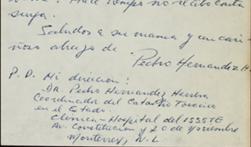 tiempo no recibo carta
suya.
Saludos a su mamá y un cari-
ñoso abrazo de
Pedro Hernandez H.
P. D. Mi dirección:
DR. Pedro Hernandez
Coordinador del
en el Estado.
Clínica-Hospital del ISSSTE
Av. Constitución y 20 de Noviembre
Monterrey, N. L.